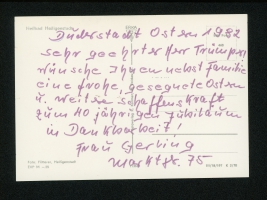 Duderstadt Ostern 1982
sehr geehrter Herr Trümper
wünsche Ihnen nebst Familie
eine frohe, gesegnete Ostern
u. weiter Schaffenskraft
zum 40 jährigen Jubiläum
in Dankbarkeit!
Frau Gerling
Marktstr. 75